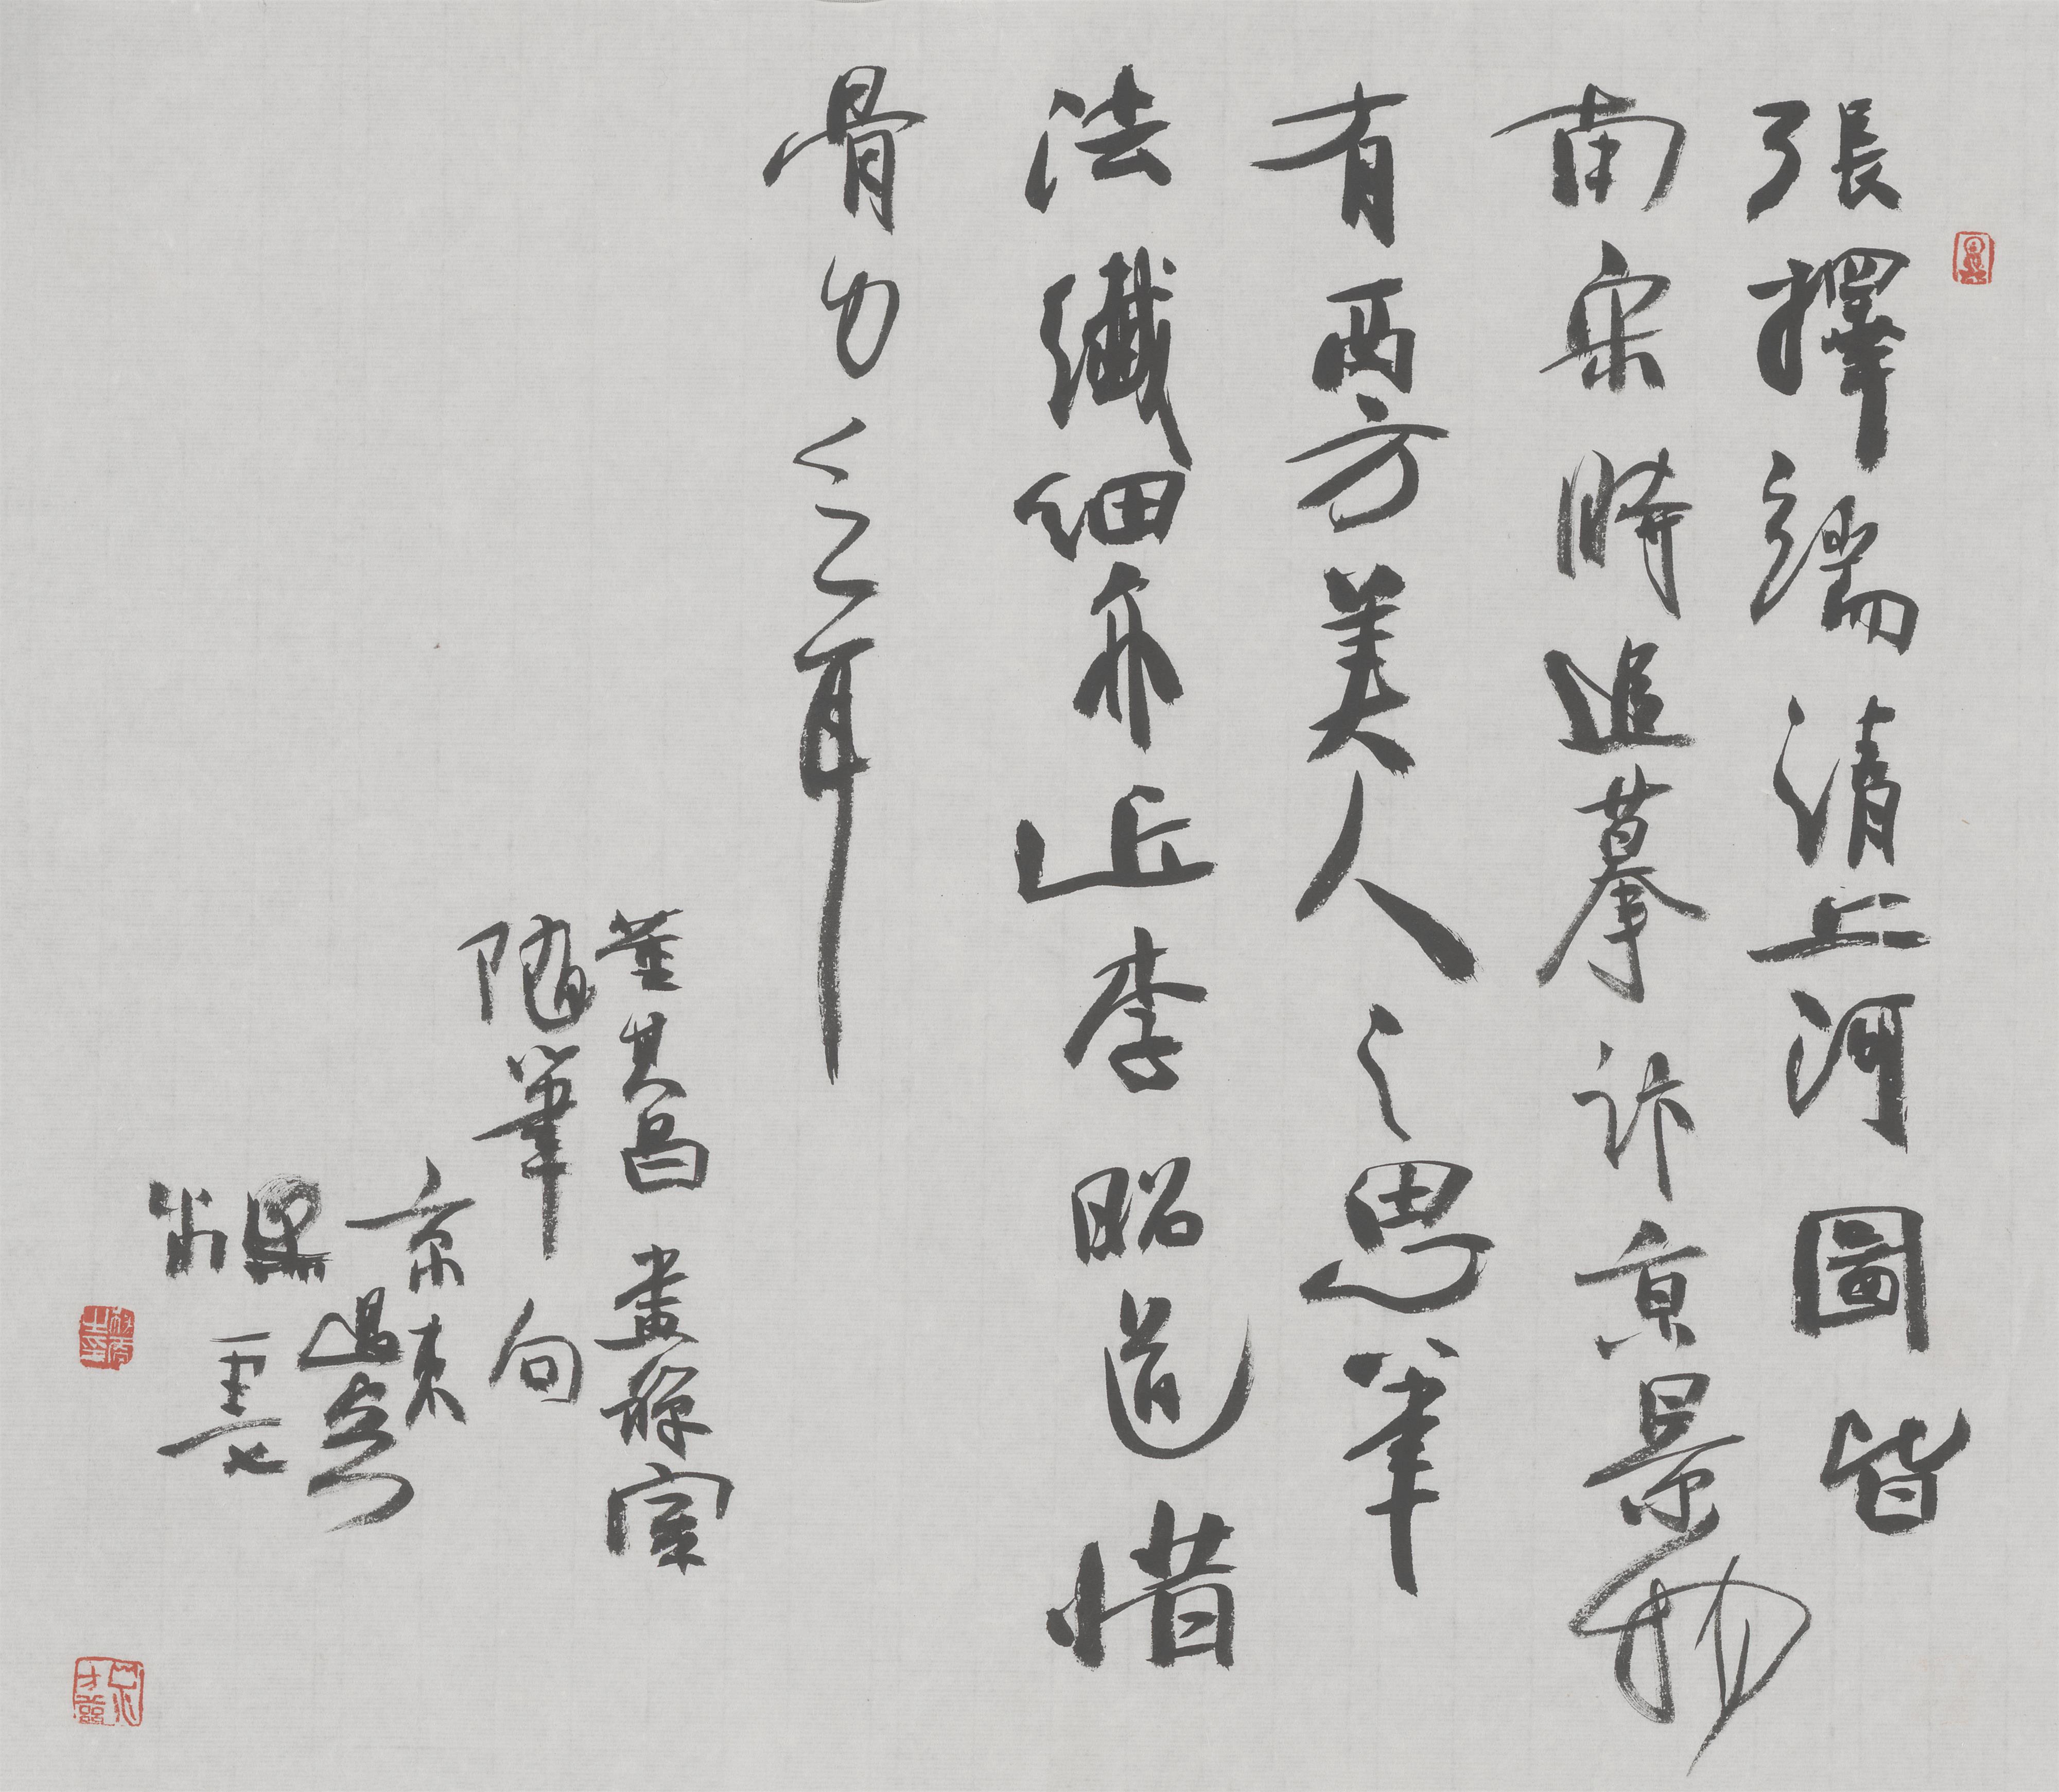 張擇端清上河圖皆
南宋時追摹汴京景物
有西方美人之思筆
法纖細亦止李昭道惜
骨力乏耳
董其昌畫禪室
隨筆句
京東